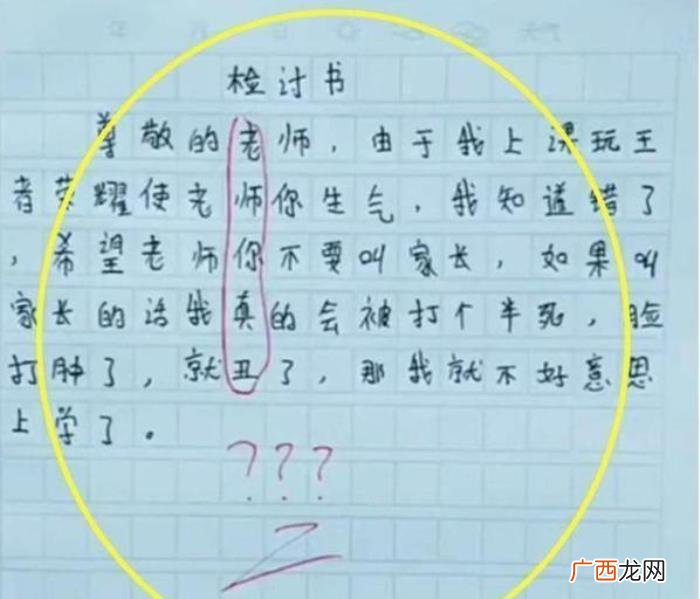 检讨书
尊敬的老师，由于我上课玩王
者荣耀使老师你生气，我知道错了
，希望老师你不要叫家长，如果叫
家长的话我真的会被打个半死，脸
打肿了，就丑了，那我就不好意思
上学了。
???
广西龙网